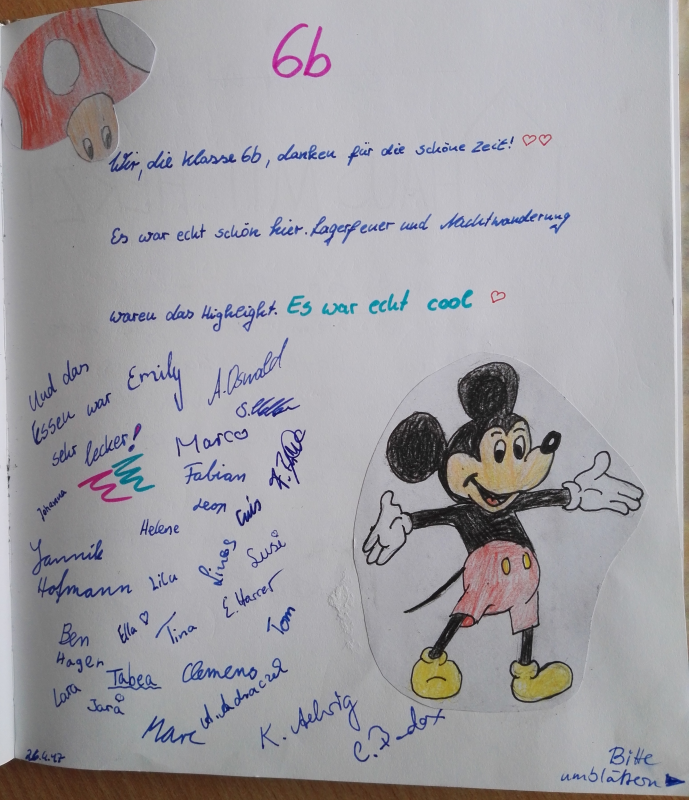 6b
Wir, die Klasse 6b, danken für die schöne Zeit!
Es war echt schön hier. Lagerfeuer und Nachtwanderung
waren das Highlight. Es war echt cool
Und das
Essen war
sehr lecker!
Emily
A. Oswald
Marco
Fabian
Johanna
Leon
Luis
Helene
Jannik
Hofmann
Lilu
Linus
Susi
Ben
Hagen
Ella
Tina
E. Harrer
Tom
Lara
Tabea
Clemens
Jara
Marc
K. Helwig
26.4.17
Bitte
umblättern